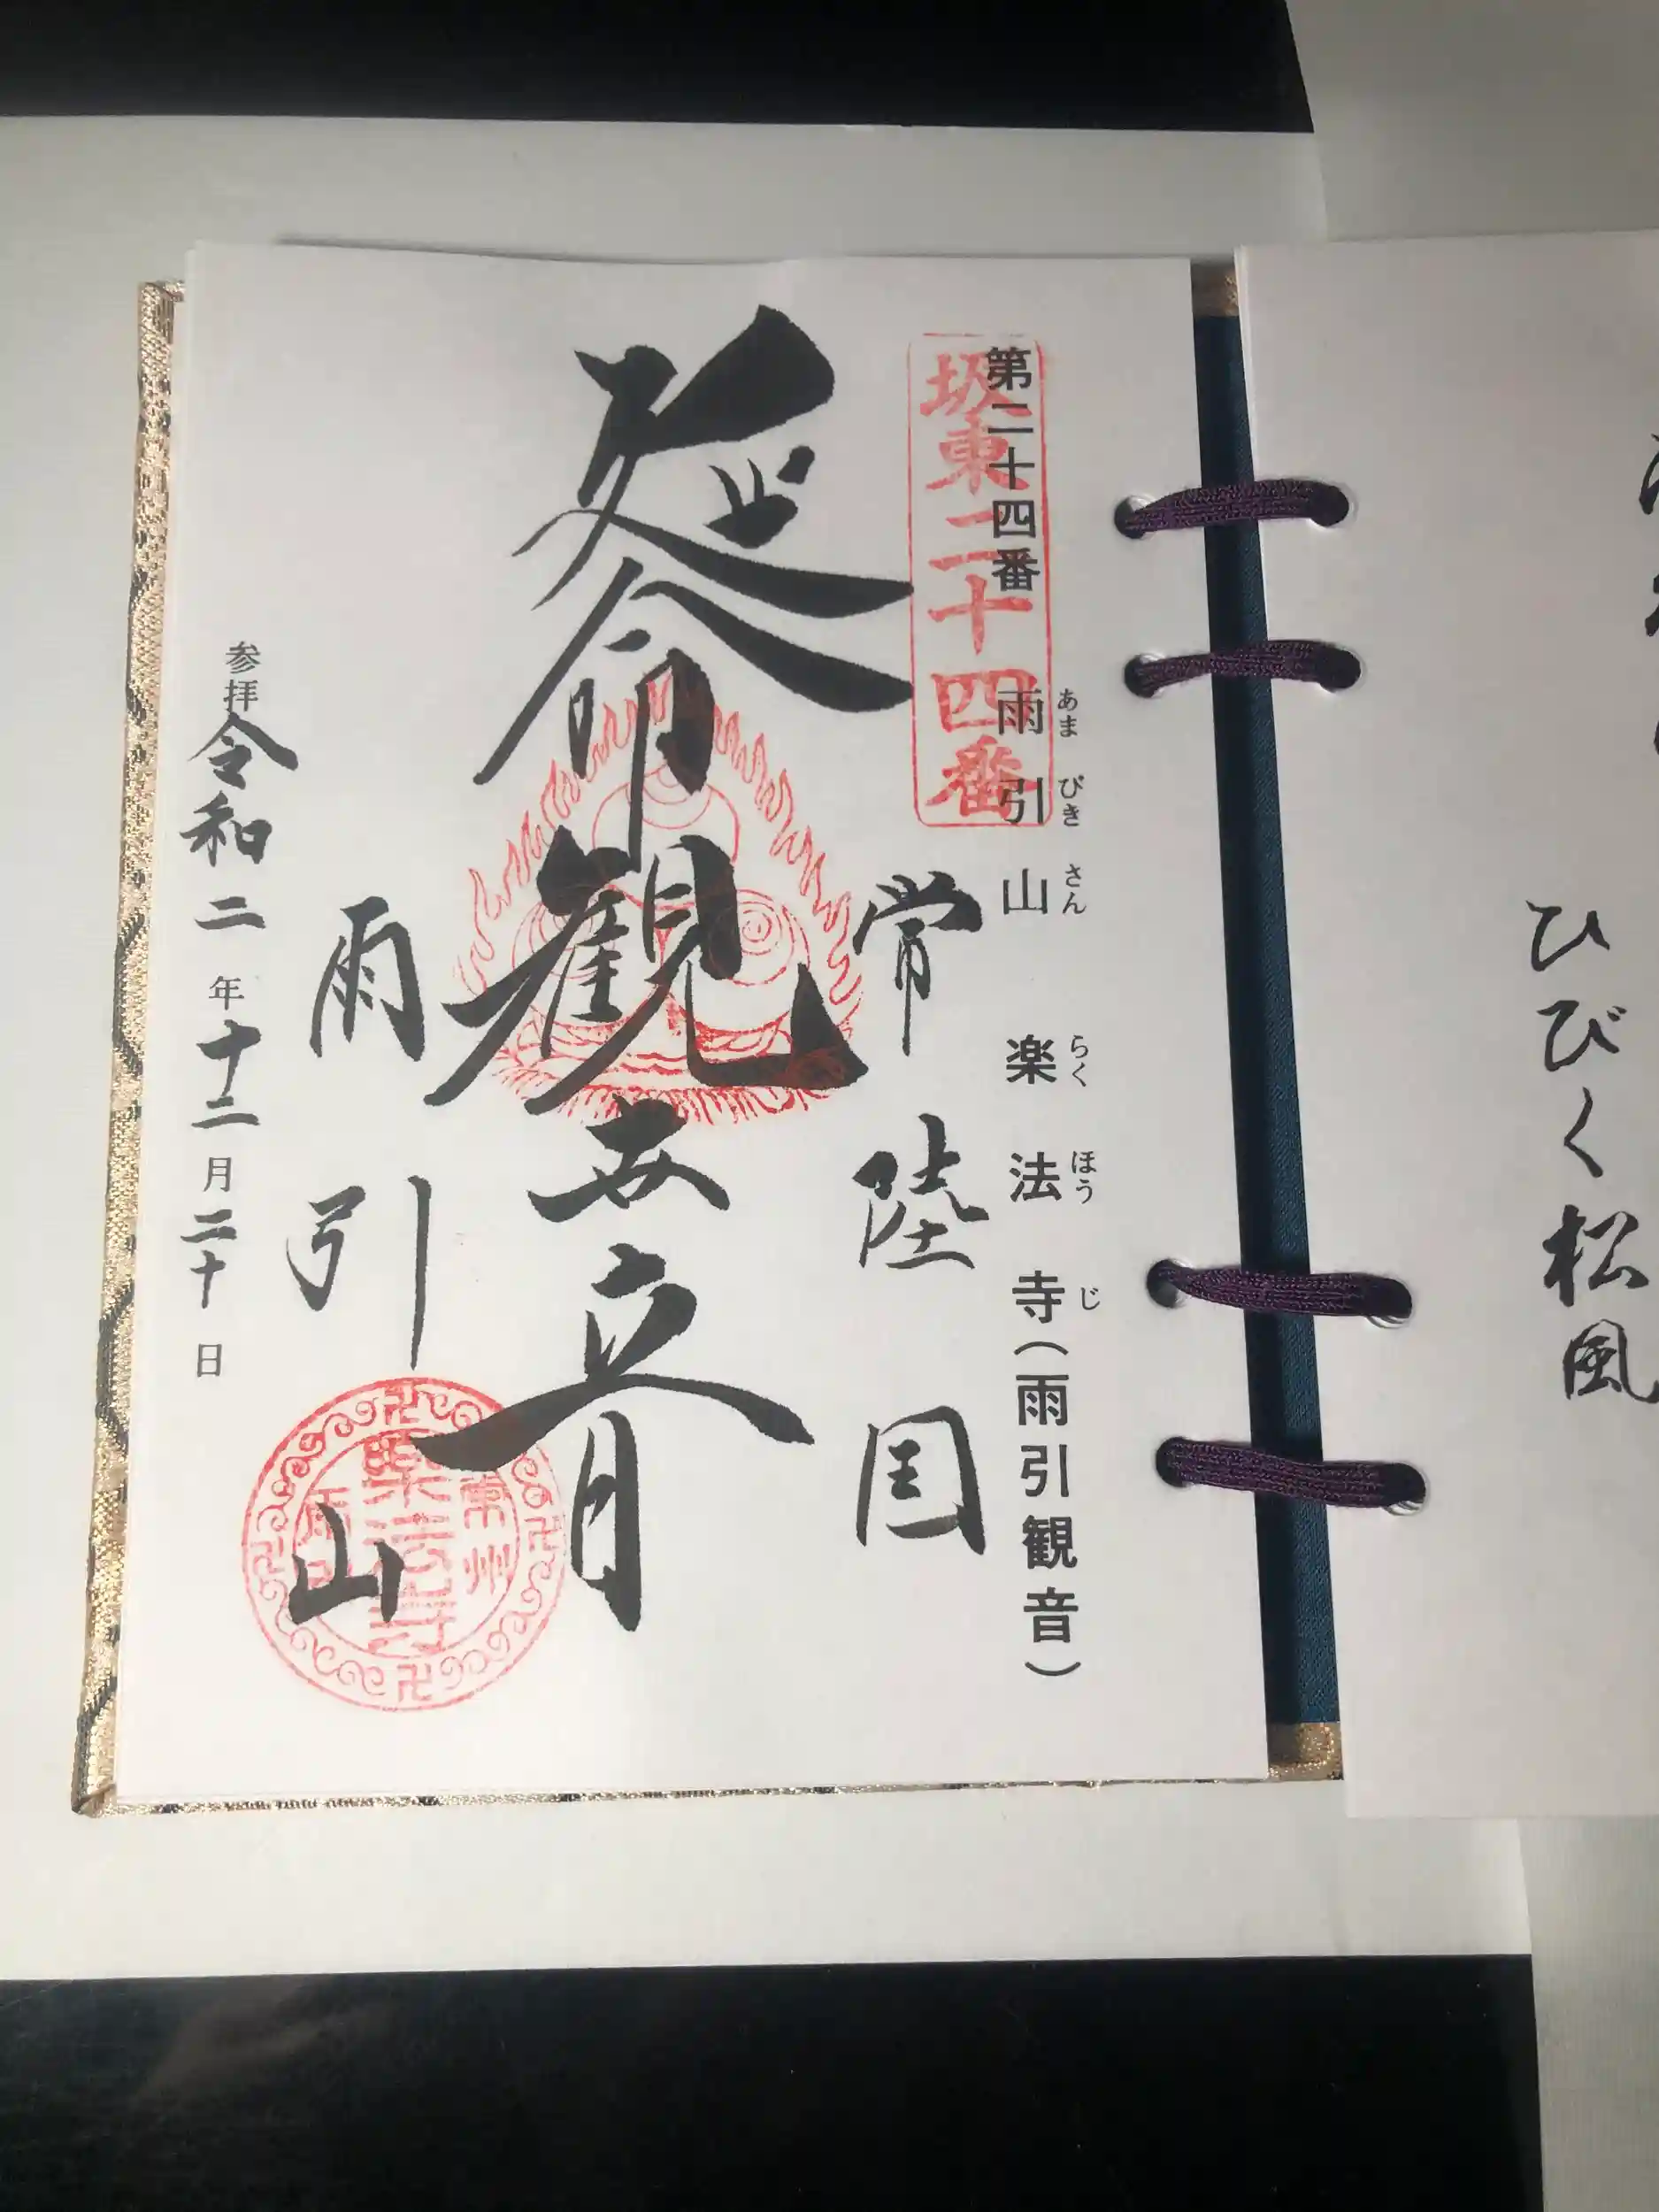 ひびく松風
第二十四番 雨引山 楽法寺（雨引観音）
あま びき さん らく ほう じ
坂東二十四番
常陸国
延命観世音
雨引山
東州
楽法寺
参拝 令和二年十二月二十日